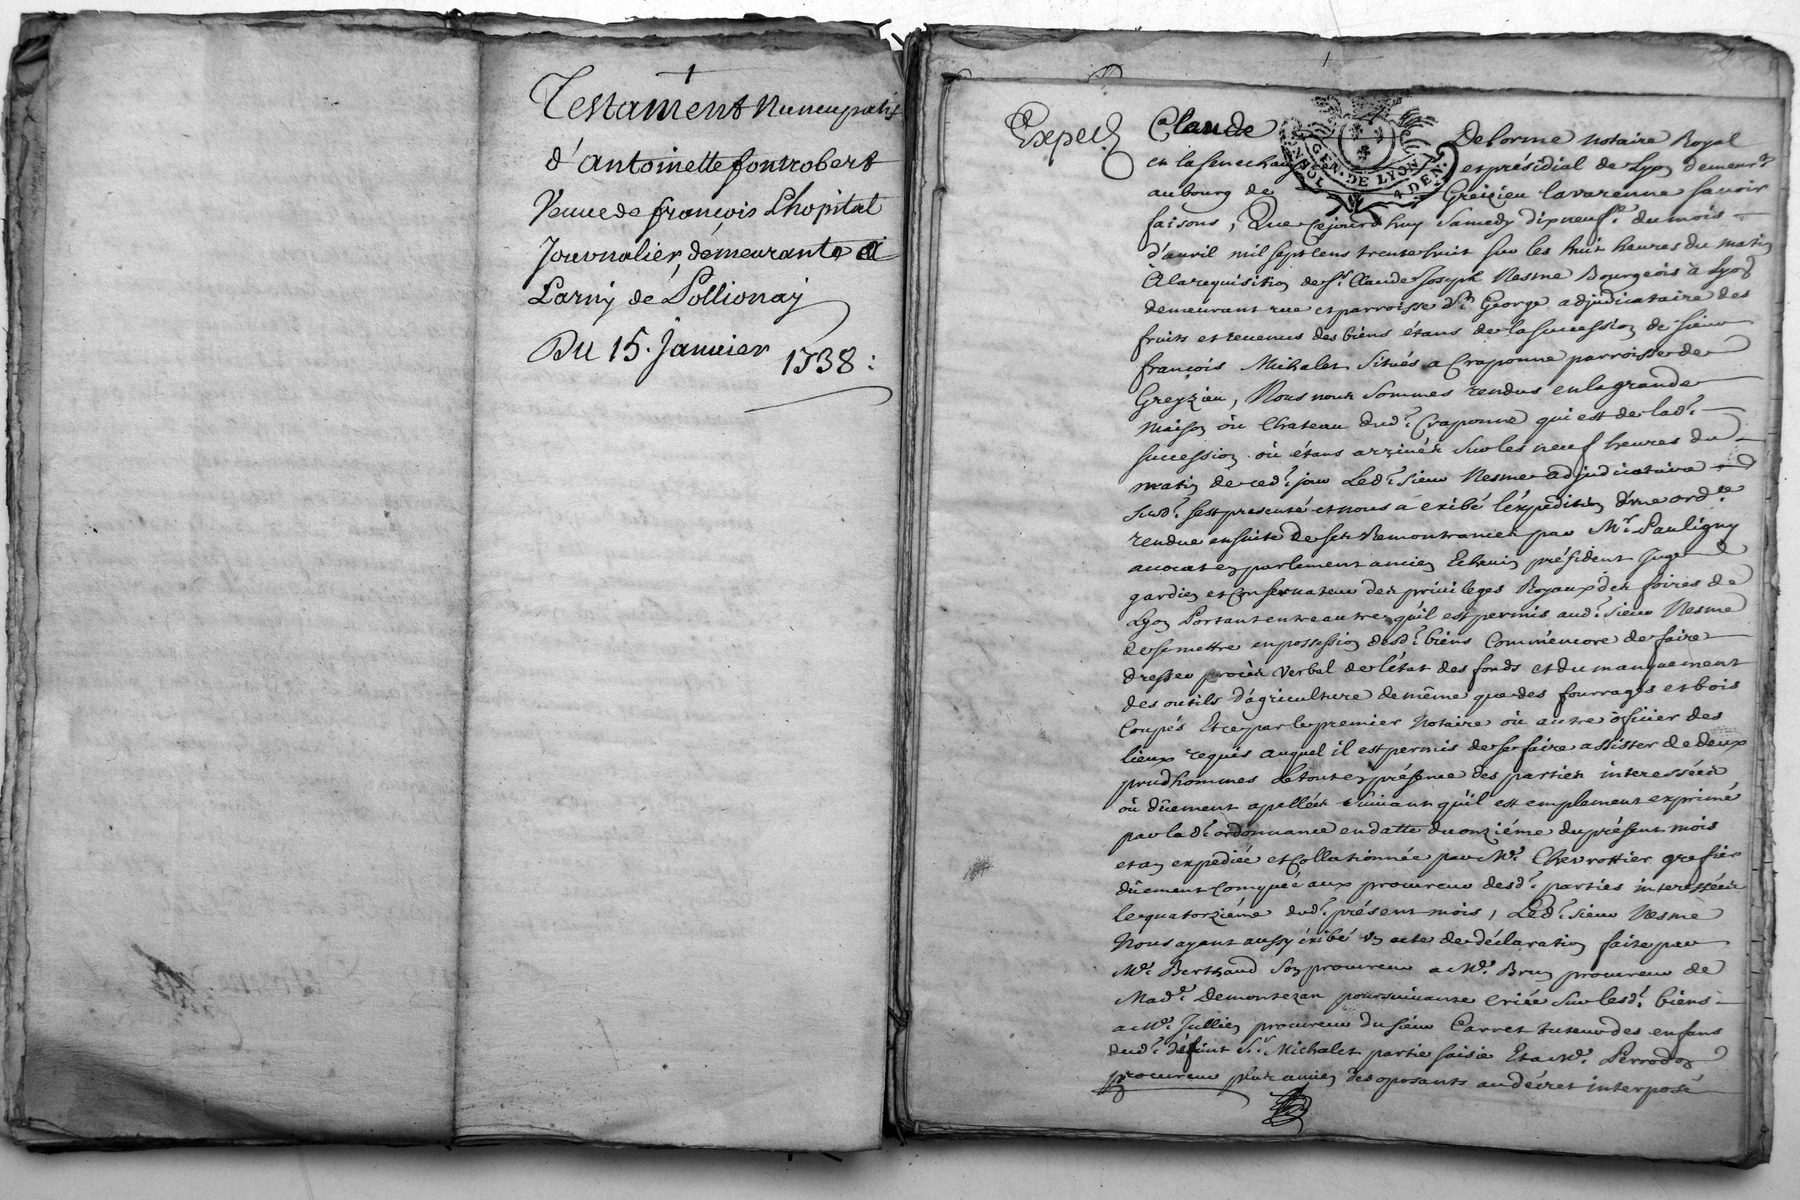 Testament Nuncupatif
d'antoinette fontrobert
Veuve de françois Lhopital
Journalier demeurante a
Larny de Pollionay
Du 15. Janvier 1738:
Exped
Claude Delorme notaire Royal
en la senechaussée et présidial de Lyon demeurt
au bourg de Greizieu lavarenne savoir
faisons, Que cejourdhuy Samedy dixneufe. du mois
d'avril mil sept cens trente huit sur les huit heures du matin
a la requisition de Sr. Claude Joseph Nesme Bourgeois à Lyon
demeurant rue et parroisse St George adjudicataire des
fruits et revenus des biens étans de la succession de sieur
françois Michalet Situés a Craponne parroisse de
Greyzieu, Nous nous sommes rendus en la grande
Maison où Chateau dud. Craponne qui est de lad.
succession où étans arrivés sur les neuf heures du
matin de ced. jour Led. sieur Nesme adjudicataire
susd. s'est presenté et nous a exibé l'expedition d'une ordce
rendue ensuite de ses Remontrances par Mr. Pauligny
avocat en parlement ancien Echevin président Juge
gardien et Conservateur des privileges Royaux des foires de
Lyon Portant entre autres qu'il est permis aud. sieur Nesme
de se mettre en possession desd. biens Comme encore de faire
dresser procès verbal de l'état des fonds et du manquement
des outils d'agriculture de même que des fourrages et bois
Coupés Et ce par le premier Notaire où autre officier des
lieux requis auquel il est permis de se faire assister de deux
prudhommes le tout en présence des parties interessées
où dûement apellées suivant qu'il est emplement exprimé
par lad. ordonnance en datte du onziéme du présent mois
et an expediée et Collationnée par Me. Chevrottier grefier
dûement Comquée aux procureur desd. parties interessées
le quatorziéme dud. présent mois, Led. sieur Nesme
Nous ayant aussy éxibé un acte de déclaration faite par
Me. Berthaud son procureur a Me. Brun procureur de
Made. Demontezan poursuivante Criée sur lesd. biens
a Me. Jullien procureur du sieur Carret tuteur des enfans
dud. défunt Sr. Michalet partie saisie Et a Me. Perrodon
procureur plus ancien des oposants au décret interposé